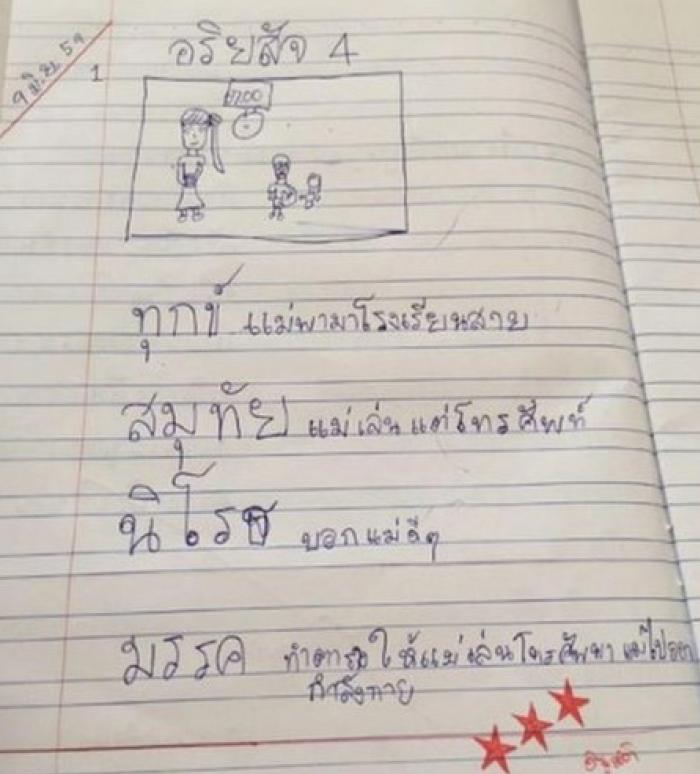 9 มิ.ย 59
1
อริยสัจ 4
7.00
ทุกข์ แม่พามาโรงเรียนสาย
สมุทัย แม่เล่นแต่โทรศัพท์
นิโรธ บอกแม่ดีๆ
มรรค ให้แม่เล่นโทรศัพท แม่ไปออก
กำลังกาย